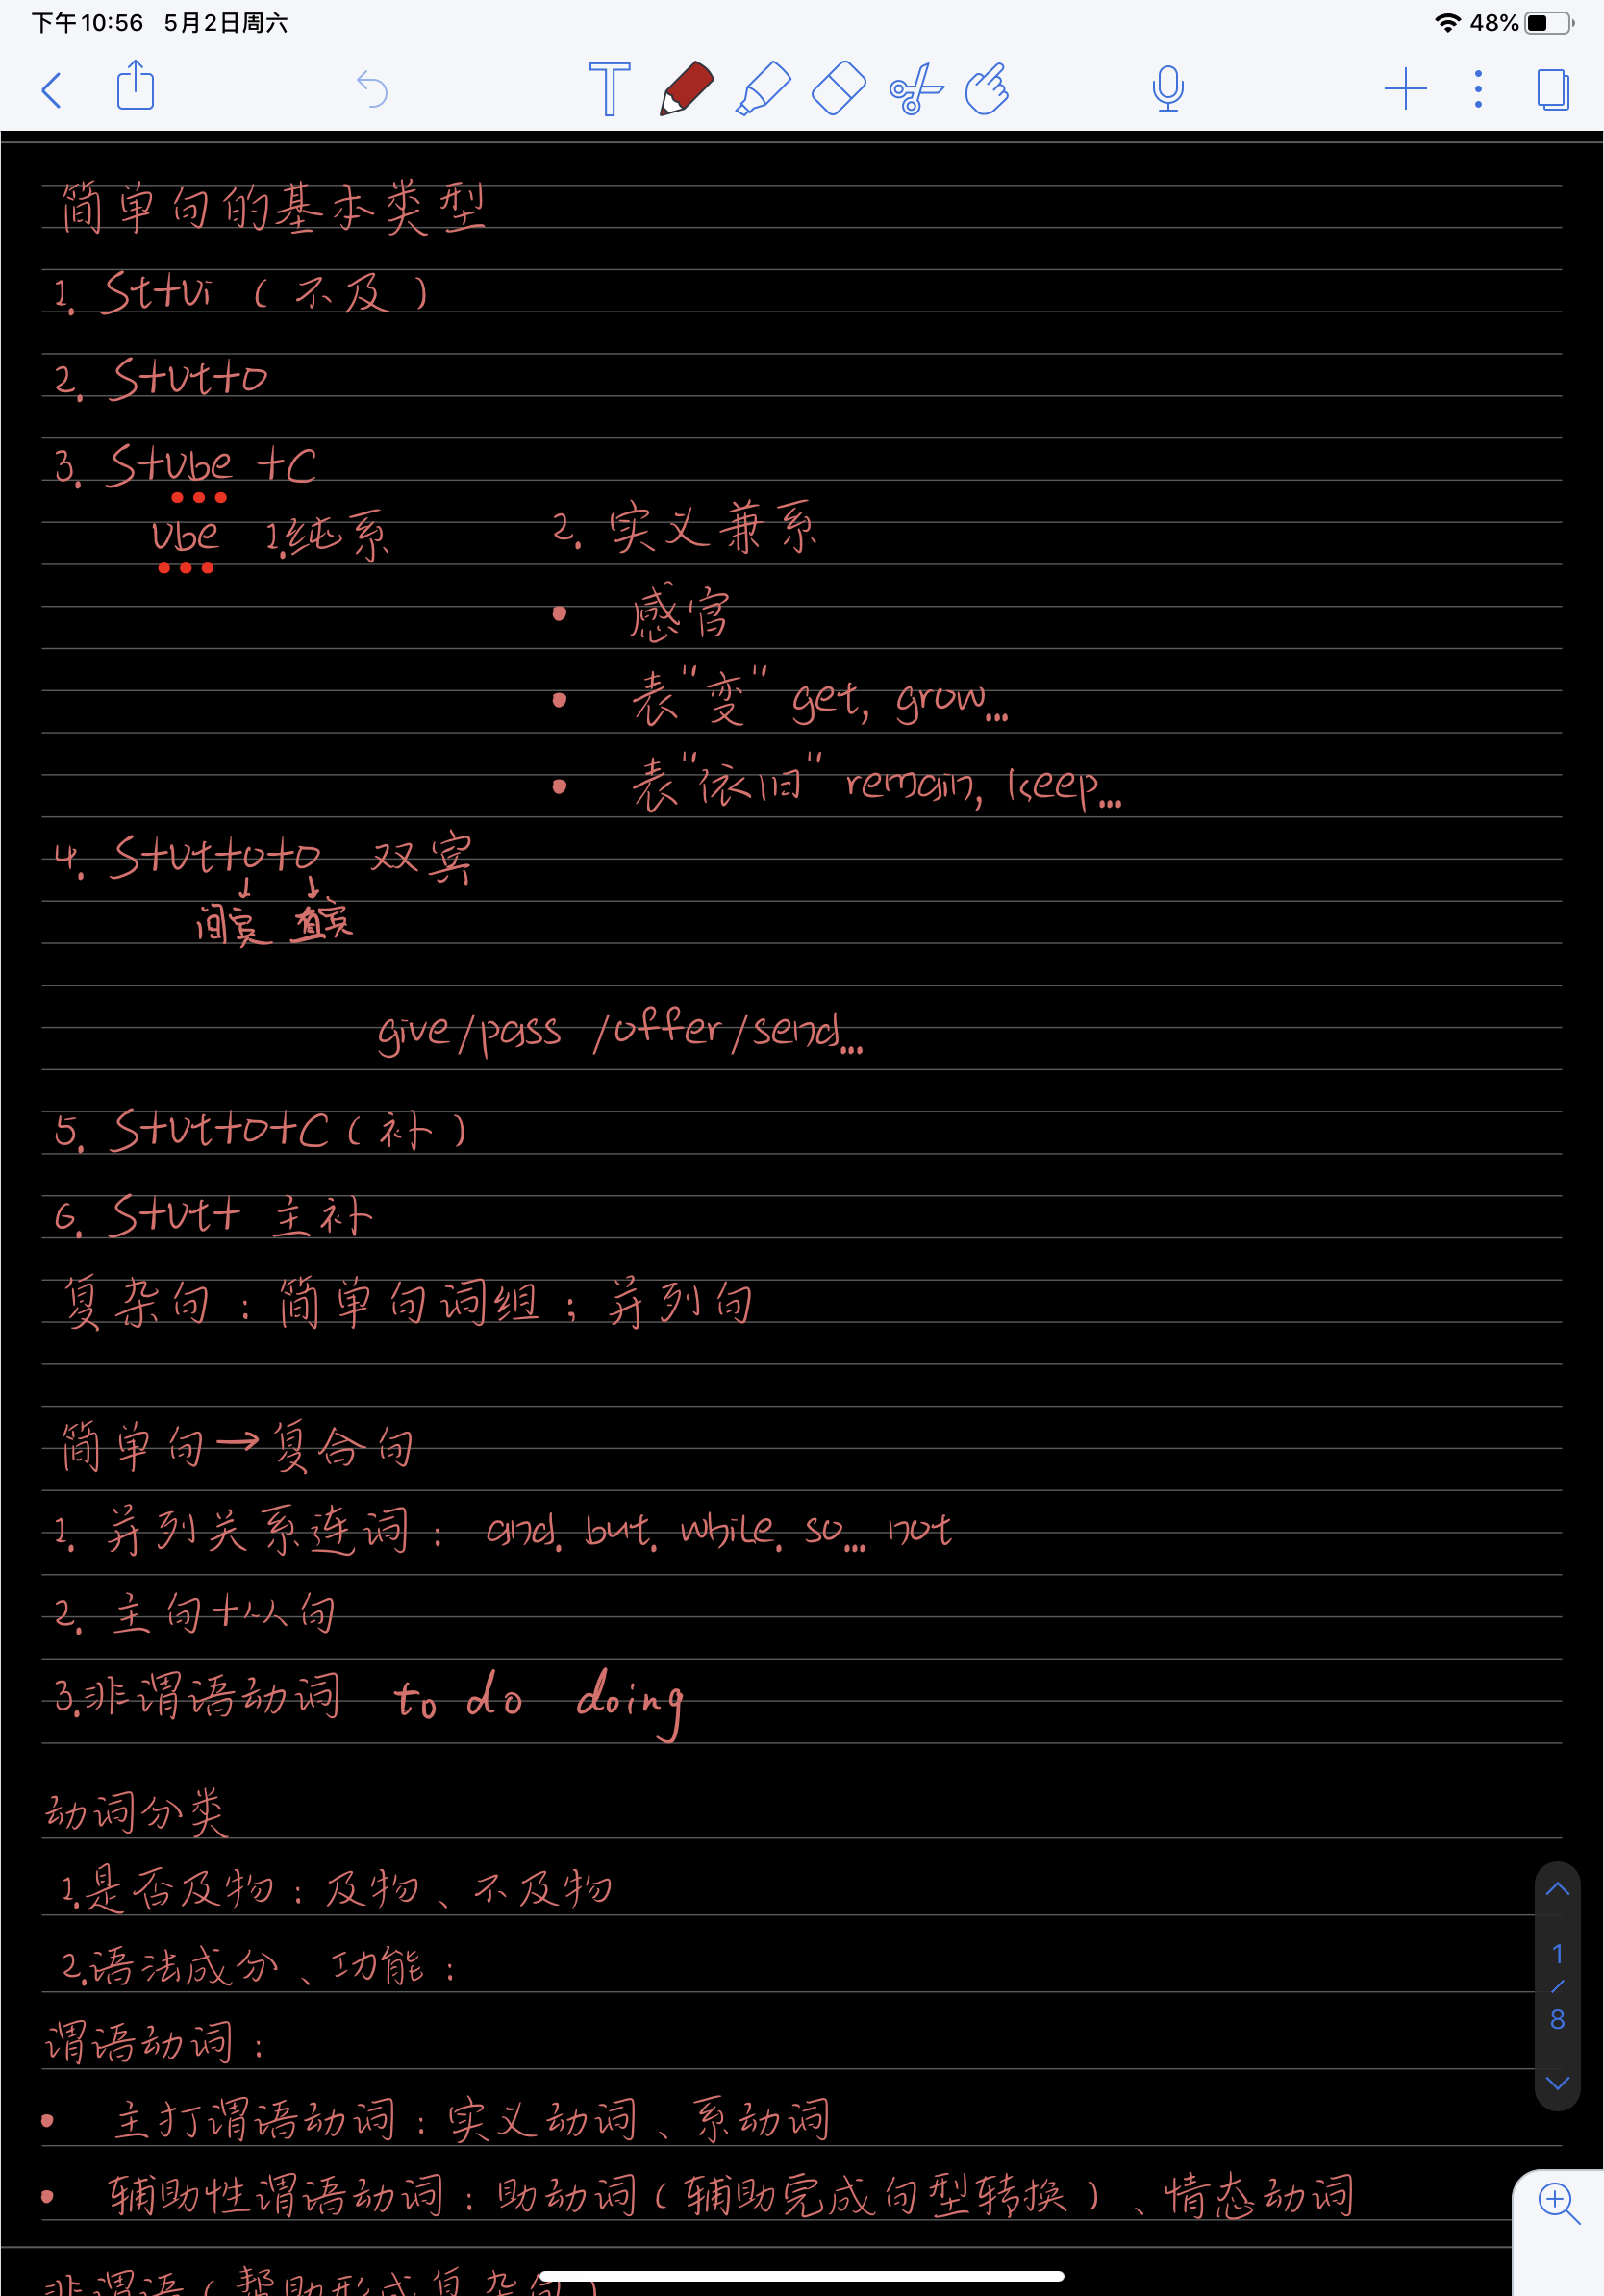 下午10:56 5月2日周六 48%
简单句的基本类型
1. S++vi (不及)
2. S+vt+o
3. S+vbe +C
vbe 1.纯系 2. 实义兼系
• 感官
• 表"变" get, grow...
• 表"依旧" remain, keep...
4. S+vt+o+o 双宾
间宾 直宾
give/pass /offer/send...
5. S+vt+o+C(补)
6. S+vt+ 主补
复杂句:简单句词组;并列句
简单句→复合句
1. 并列关系连词: and. but. while. so... not
2. 主句+从句
3.非谓语动词 to do doing
动词分类
1.是否及物:及物、不及物
2.语法成分、功能:
谓语动词:
• 主打谓语动词:实义动词、系动词
• 辅助性谓语动词:助动词(辅助完成句型转换)、情态动词
非谓语(帮助形成复杂句)
1
/
8